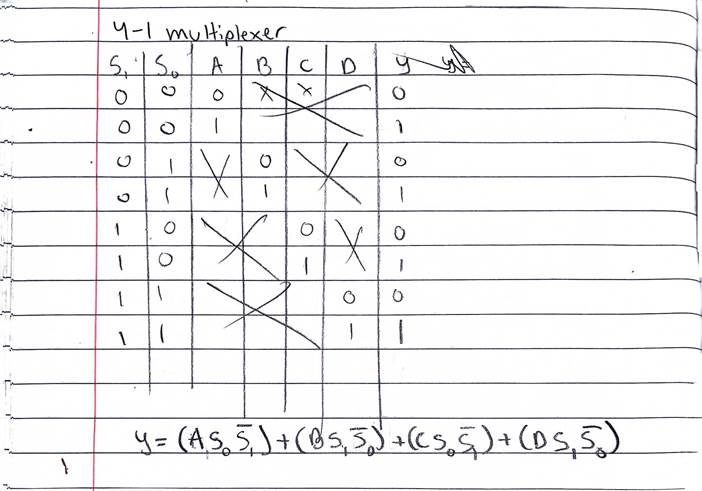 4-1 multiplexer
S₁ S₀ A B C D Y
0 0 0 X X 0
0 0 1 X 1
0 1 X 0 X 0
0 1 X 1 X 1
1 0 X 0 X 0
1 0 X 1 X 1
1 1 X 0 0
1 1 X 1 1
Y = (A S₀ S̄₁) + (B S₁ S̄₀) + (C S₀ S̄₁) + (D S₁ S̄₀)
1